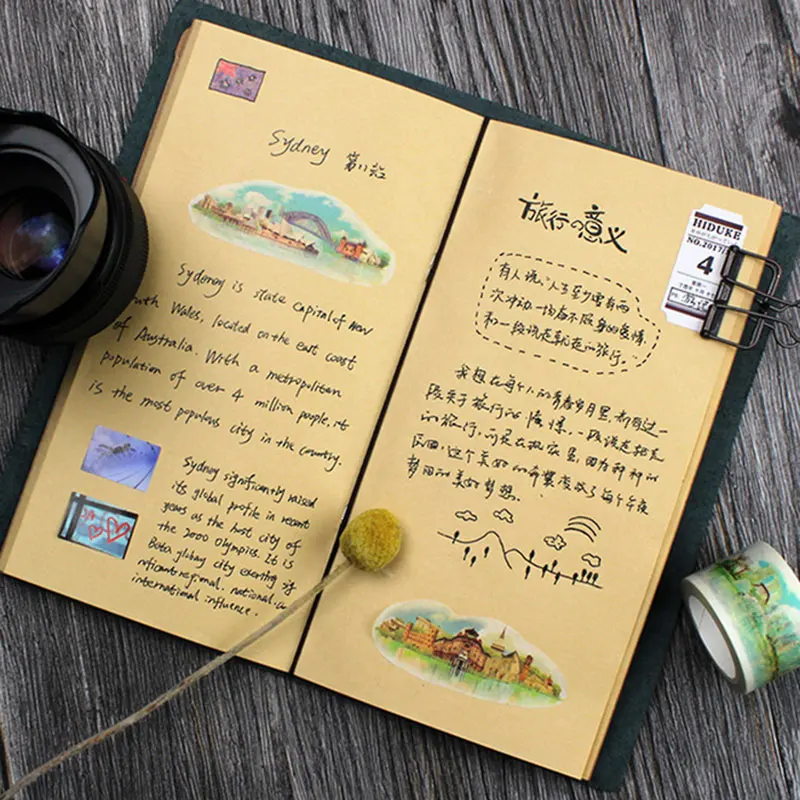 Sydney 第11站
Syderney is state capital of New
uth Wales, located on the east coast
of Australia. With a metropolitan
population of over 4 million people, it
is the most populous city in the country.
Sydney significantly raised
its global profile in recent
years as the host city of
the 2000 Olympics. It is
Beta global city exerting sig
nificant regional, national, a
international influence.
旅行の意义
有人说:人至少要有两
次冲动一场奋不顾身的爱情
和一段说走就走的旅行。
我想在每个人的青春岁月里,都有过一
段关于旅行的憧憬,一段说走就走
的旅行,可是在现实里,因为种种
原因,这个美好的
梦的美好梦想。
HIDUKE
NO.2017
4